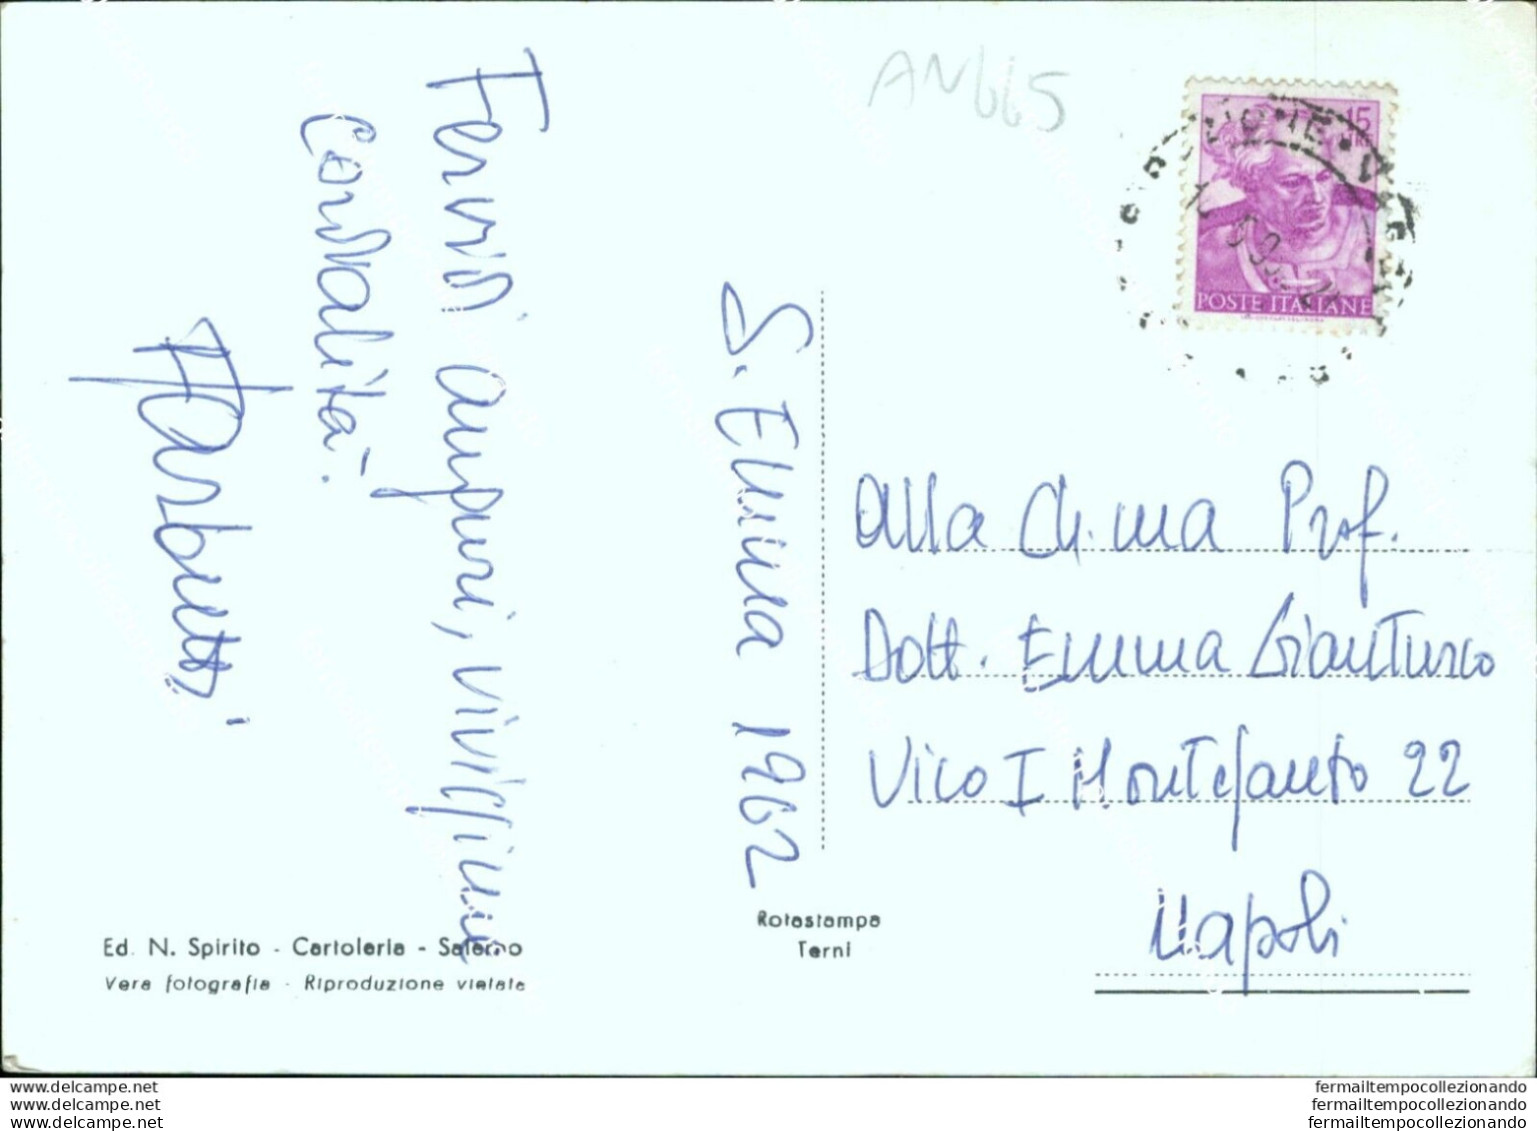 AN665
15
LIRE
POSTE ITALIANE
S. Emma 1962
Fervidi auguri, vivissime
Cordialità.
Alla Ch.ma Prof.
Dott. Emma Gianturco
Vico I Montesanto 22
Napoli
Rotostampa
Terni
Ed. N. Spirito - Cartoleria - Salerno
Vera fotografia - Riproduzione vietata
www.delcampe.net
www.delcampe.net
www.delcampe.net
fermailtempocollezionando
fermailtempocollezionando
fermailtempocollezionando